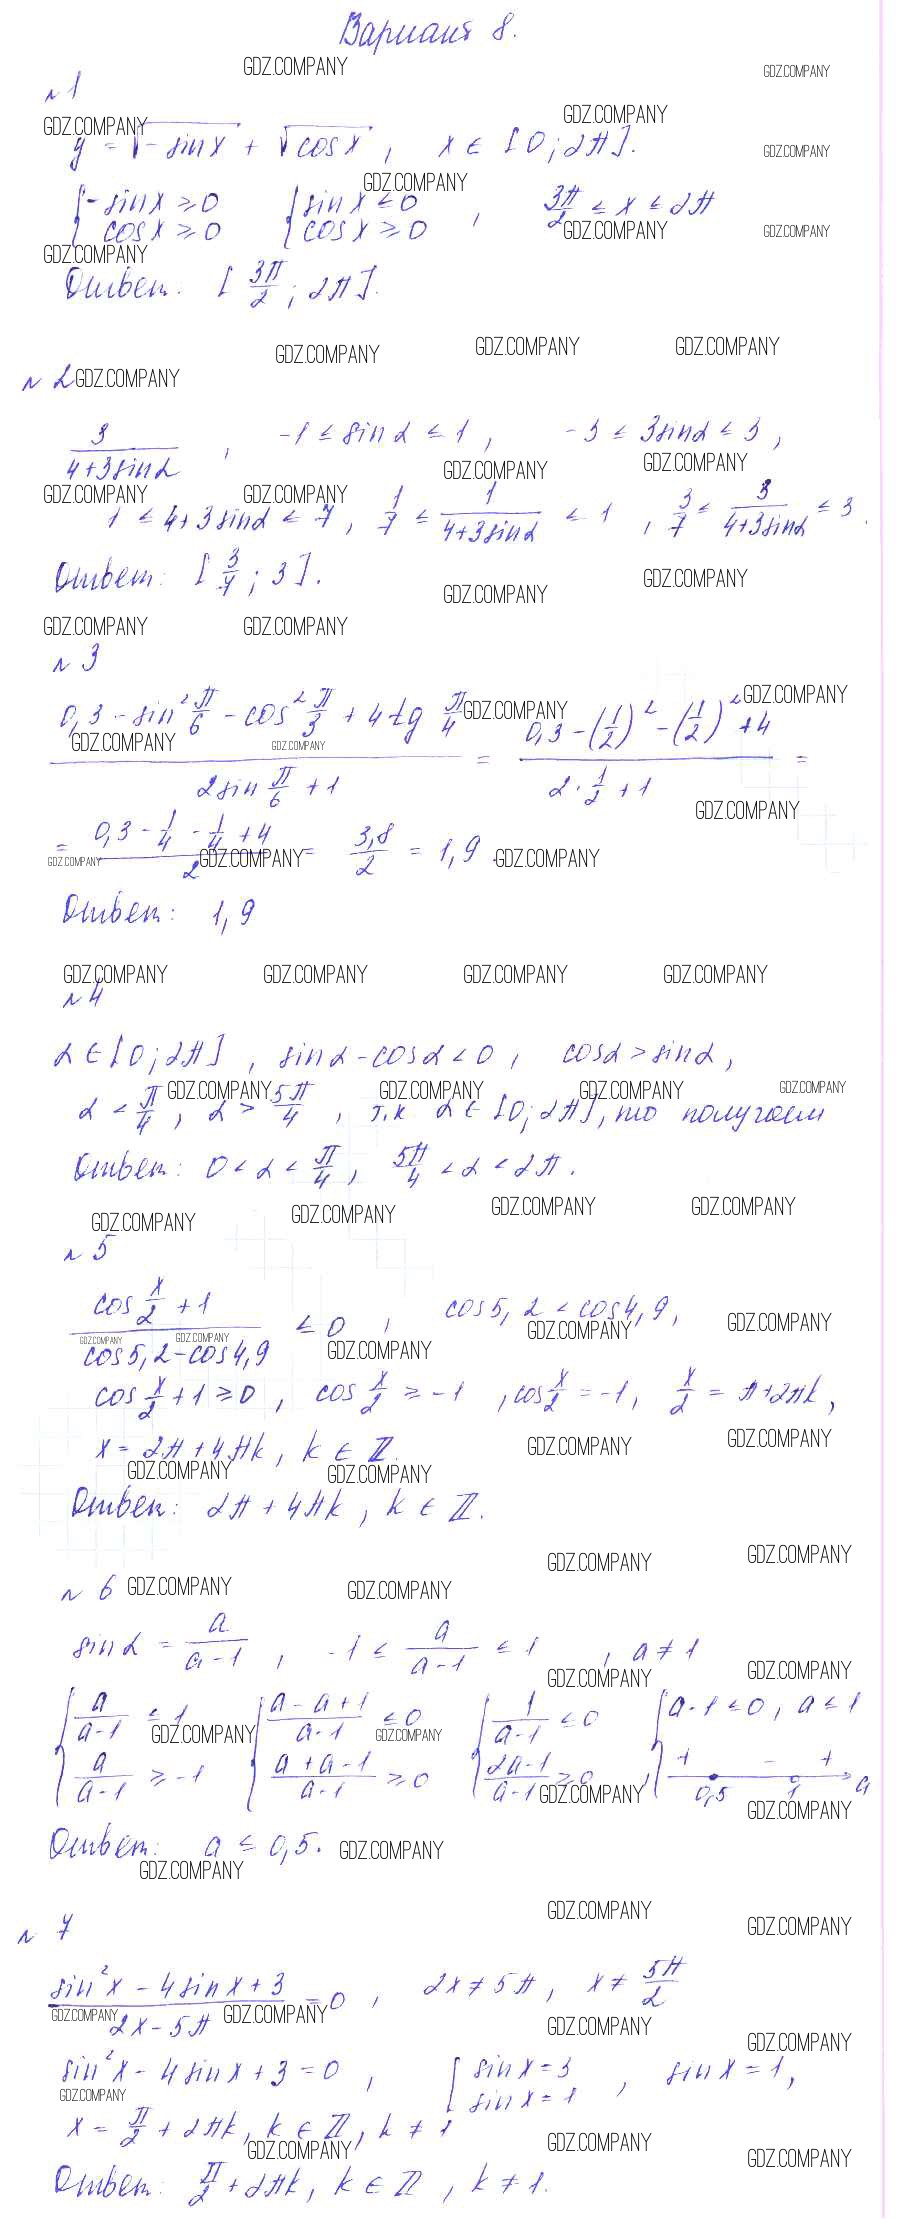 Вариант 8.
GDZ.COMPANY GDZ.COMPANY
№1
GDZ.COMPANY GDZ.COMPANY
y = √-sinx + √cosx , x ∈ [0; 2π]. GDZ.COMPANY
GDZ.COMPANY
{ -sinx ≥ 0 { sinx ≤ 0 , 3π/2 ≤ x ≤ 2π
cosx ≥ 0 cosx ≥ 0 GDZ.COMPANY GDZ.COMPANY
GDZ.COMPANY
Ответ: [3π/2; 2π].
GDZ.COMPANY GDZ.COMPANY GDZ.COMPANY
№2 GDZ.COMPANY
3/(4+3sinα) , -1 ≤ sinα ≤ 1, -3 ≤ 3sinα ≤ 3,
GDZ.COMPANY GDZ.COMPANY
GDZ.COMPANY GDZ.COMPANY
1 ≤ 4+3sinα ≤ 7, 1/7 ≤ 1/(4+3sinα) ≤ 1 , 3/7 ≤ 3/(4+3sinα) ≤ 3.
Ответ: [3/7; 3].
GDZ.COMPANY GDZ.COMPANY
GDZ.COMPANY GDZ.COMPANY
№3
(0,3 - sin² π/6 - cos² π/3 + 4tg π/4)/(2sin π/6 + 1) = (0,3 - (1/2)² - (1/2)² + 4)/(2·1/2 + 1) =
GDZ.COMPANY GDZ.COMPANY GDZ.COMPANY GDZ.COMPANY GDZ.COMPANY
= (0,3 - 1/4 - 1/4 + 4)/2 = 3,8/2 = 1,9.
GDZ.COMPANY GDZ.COMPANY GDZ.COMPANY
Ответ: 1,9
GDZ.COMPANY GDZ.COMPANY GDZ.COMPANY GDZ.COMPANY
№4
α ∈ [0; 2π] , sinα - cosα < 0 , cosα > sinα,
GDZ.COMPANY GDZ.COMPANY GDZ.COMPANY GDZ.COMPANY
α < π/4 , α > 5π/4 , т.к α ∈ [0; 2π], то получаем
Ответ: 0 < α < π/4 , 5π/4 < α < 2π.
GDZ.COMPANY GDZ.COMPANY GDZ.COMPANY GDZ.COMPANY
№5
(cos x/2 + 1)/(cos5,2 - cos4,9) ≤ 0 , cos5,2 < cos4,9,
GDZ.COMPANY GDZ.COMPANY GDZ.COMPANY GDZ.COMPANY GDZ.COMPANY
cos x/2 + 1 ≥ 0 , cos x/2 ≥ -1 , cos x/2 = -1, x/2 = π+2πk,
x = 2π + 4πk, k ∈ Z. GDZ.COMPANY GDZ.COMPANY
GDZ.COMPANY GDZ.COMPANY
Ответ: 2π + 4πk, k ∈ Z.
GDZ.COMPANY GDZ.COMPANY
№6 GDZ.COMPANY GDZ.COMPANY
sinα = a/(a-1) , -1 ≤ a/(a-1) ≤ 1 , a ≠ 1
GDZ.COMPANY GDZ.COMPANY
{ a/(a-1) ≤ 1 { (a-a+1)/(a-1) ≤ 0 { 1/(a-1) ≤ 0 { a-1 ≤ 0, a ≤ 1
GDZ.COMPANY GDZ.COMPANY
a/(a-1) ≥ -1 (a+a-1)/(a-1) ≥ 0 (2a-1)/(a-1) ≥ 0 , + - + 0,5 1 a
GDZ.COMPANY GDZ.COMPANY
Ответ: a ≤ 0,5. GDZ.COMPANY
GDZ.COMPANY
GDZ.COMPANY
№7 GDZ.COMPANY
(sin²x - 4sinx + 3)/(2x-5π) = 0 , 2x ≠ 5π, x ≠ 5π/2
GDZ.COMPANY GDZ.COMPANY GDZ.COMPANY GDZ.COMPANY
sin²x - 4sinx + 3 = 0 , [ sinx = 3 , sinx = 1,
GDZ.COMPANY sinx = 1
x = π/2 + 2πk, k ∈ Z, k ≠ 1
GDZ.COMPANY GDZ.COMPANY GDZ.COMPANY
Ответ: π/2 + 2πk, k ∈ Z , k ≠ 1.